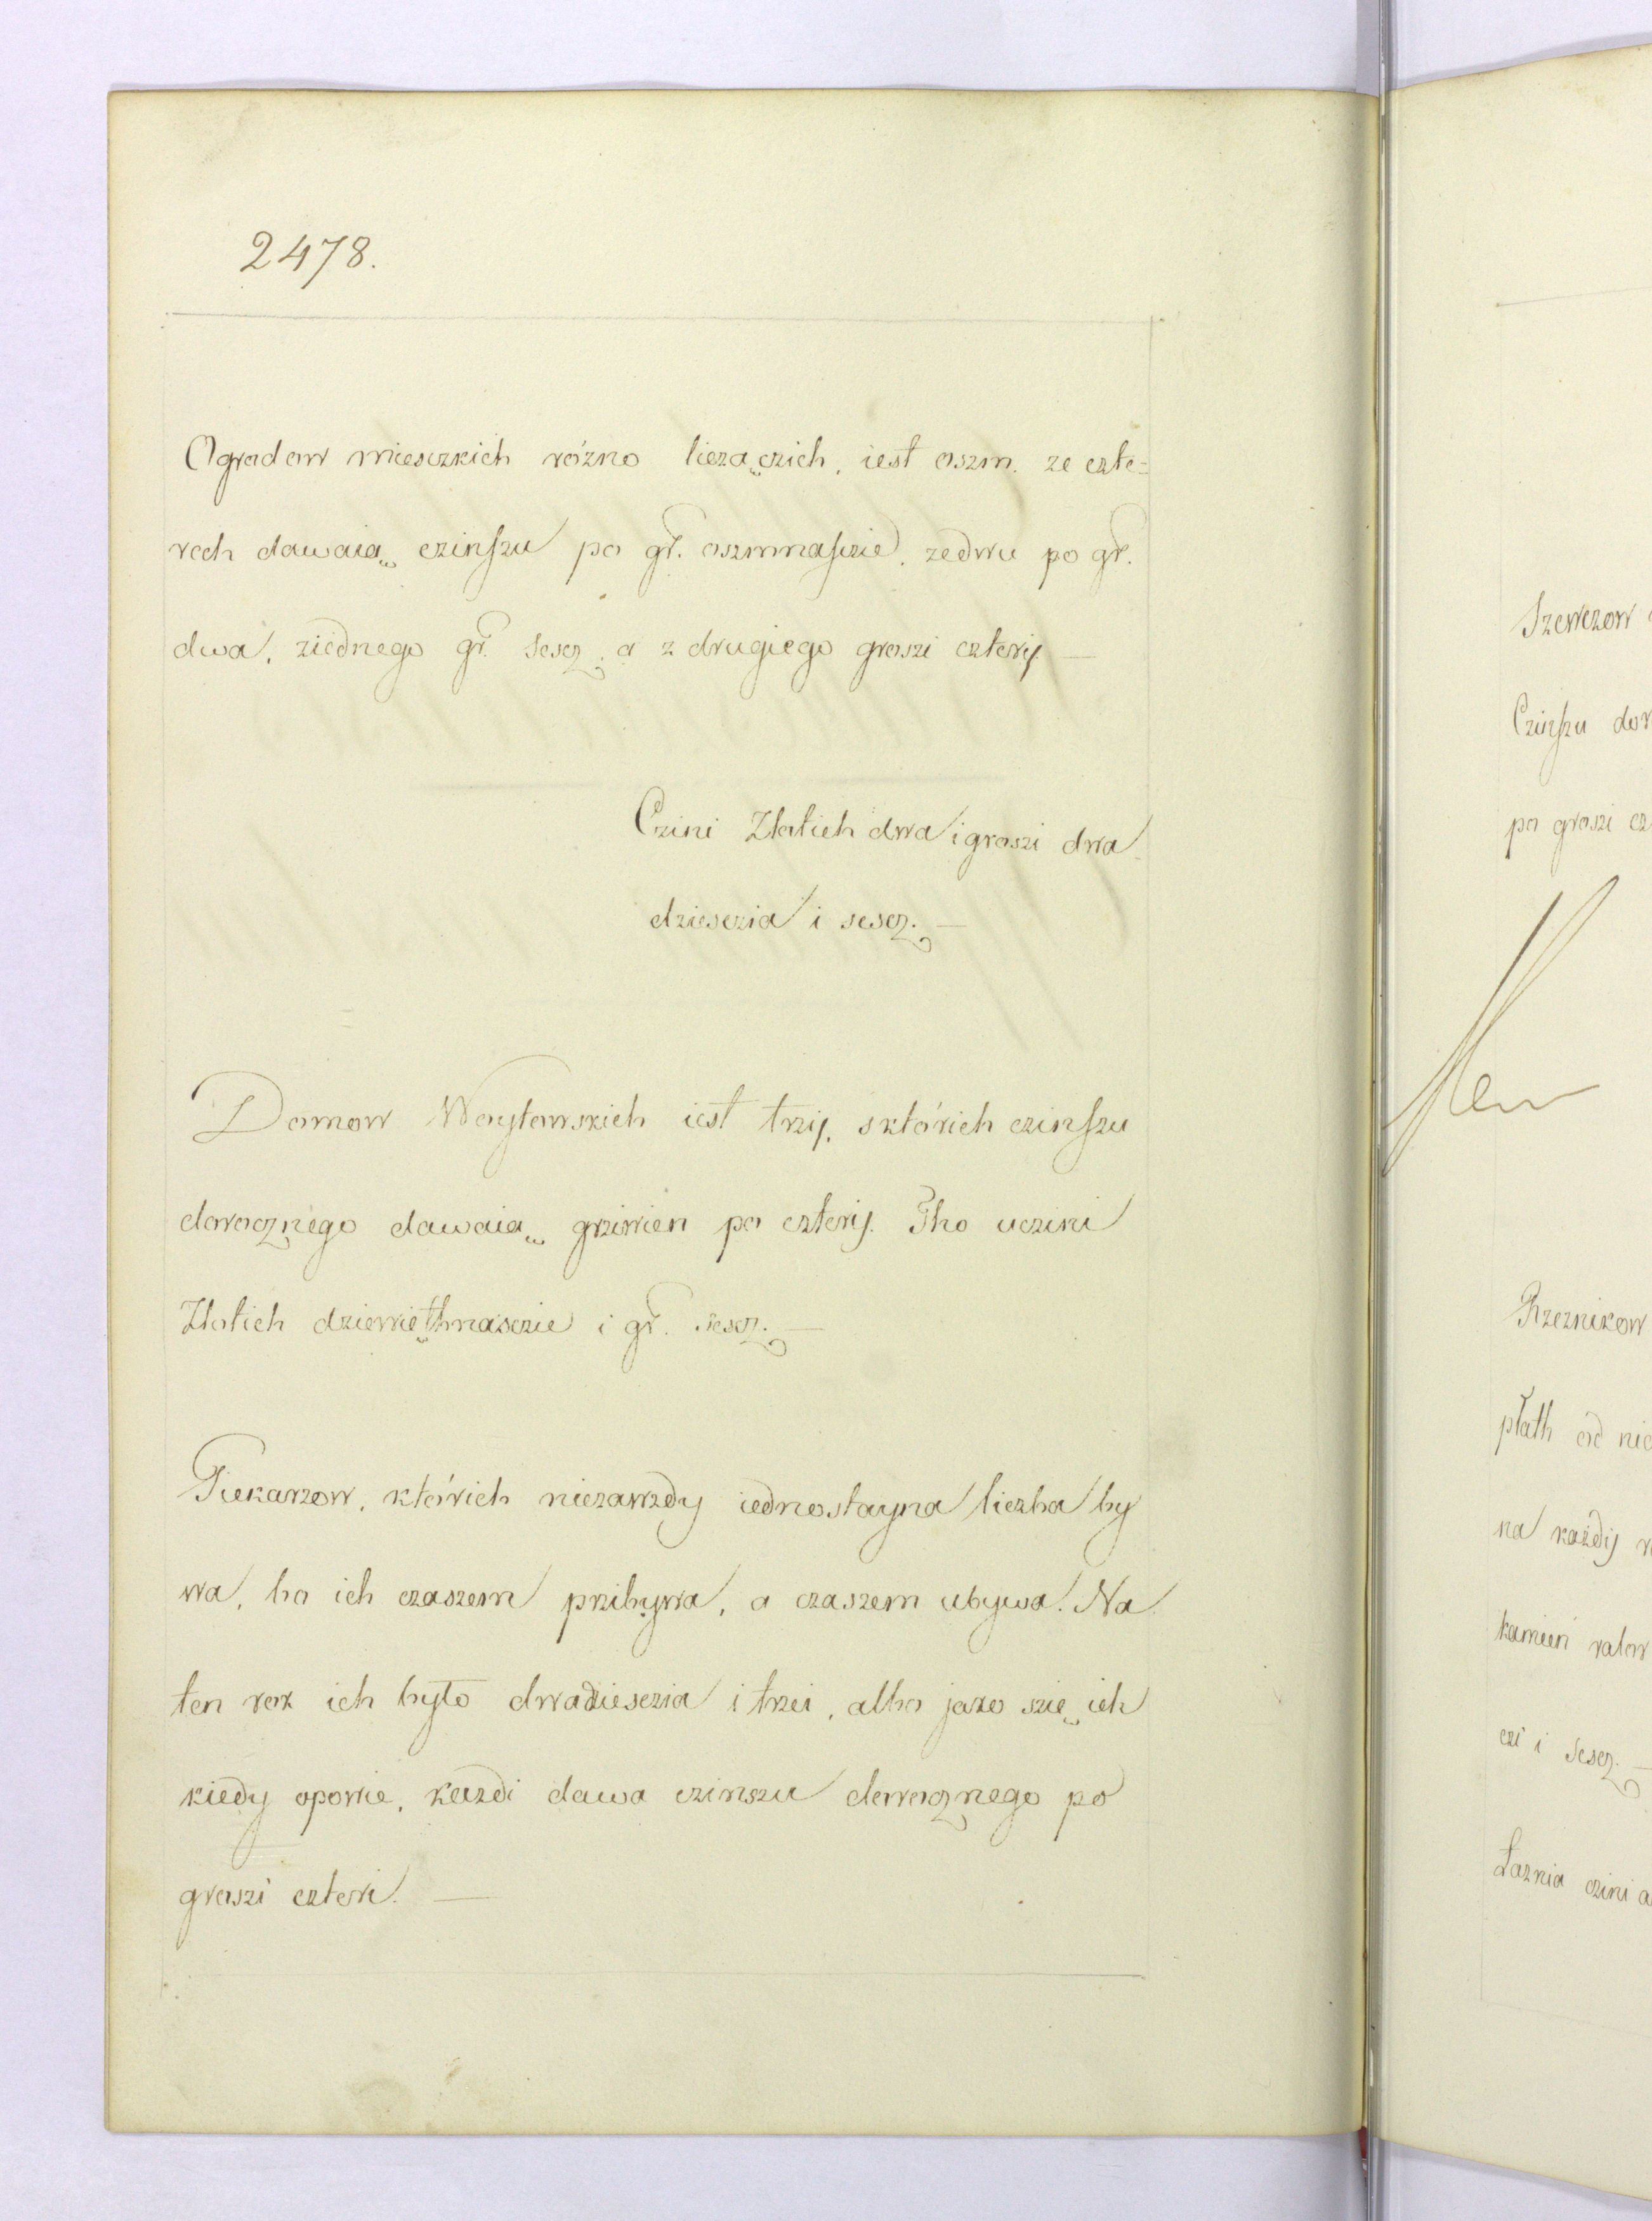 2478.
Ogrodow miesczkich rózno liezączich, iest oszm. ze czte=
rech dawaią czinszu po gr. oszmnascie, zedwu po gr.
dwa, ziednego gr. sescz, a z drugiego groszi cztery. —
Czini Złotich dwa i groszi dwa
dziesczia i sescz. —
Domow Woytowskich iest trzy, s których czinszu
dorocznego dawaią grziwien po cztery. Tho uczini
Złotich dziewięthnasczie i gr. sescz. —
Piekarzow, którich niezawzdy iednostayna liczba by
wa, bo ich czaszem przibywa, a czaszem ubywa. Na
ten rok ich było dwadziesczia i trzei, albo jako szię ich
kiedy opowie, kazdi dawa czinszu dorocznego po
groszi czteri. —
Szewczow
Czinszu dor
po groszi cz
Rzeznikow
płath od nic
na każdy r
kamień łoiow
czi i sescz. —
Łaznia czini a